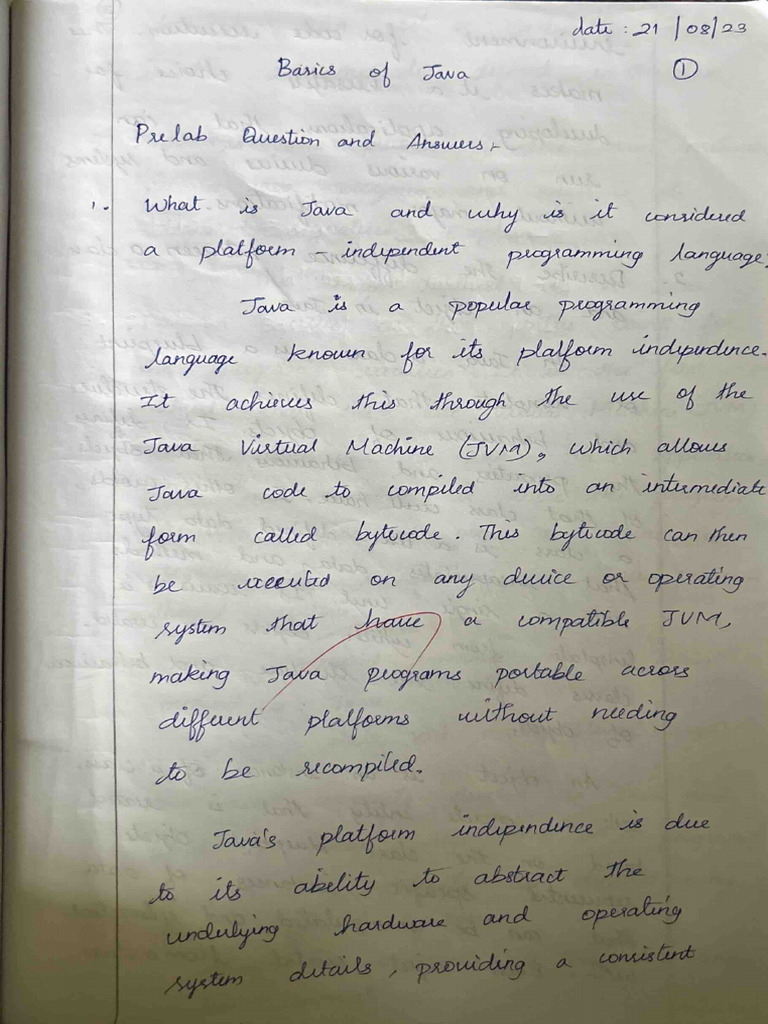 date : 21/08/23
Basics of Java
1
Prelab Question and Answers:-
1. What is Java and why is it considered
a platform - independent programming language.
Java is a popular programming
language known for its platform independence.
It achieves this through the use of the
Java Virtual Machine (JVM), which allows
Java code to compiled into an intermediate
form called bytecode. This bytecode can then
be executed on any device or operating
system that have a compatible JVM,
making Java programs portable across
different platforms without needing
to be recompiled.
Java's platform independence is due
to its ability to abstract the
underlying hardware and operating
system details, providing a consistent